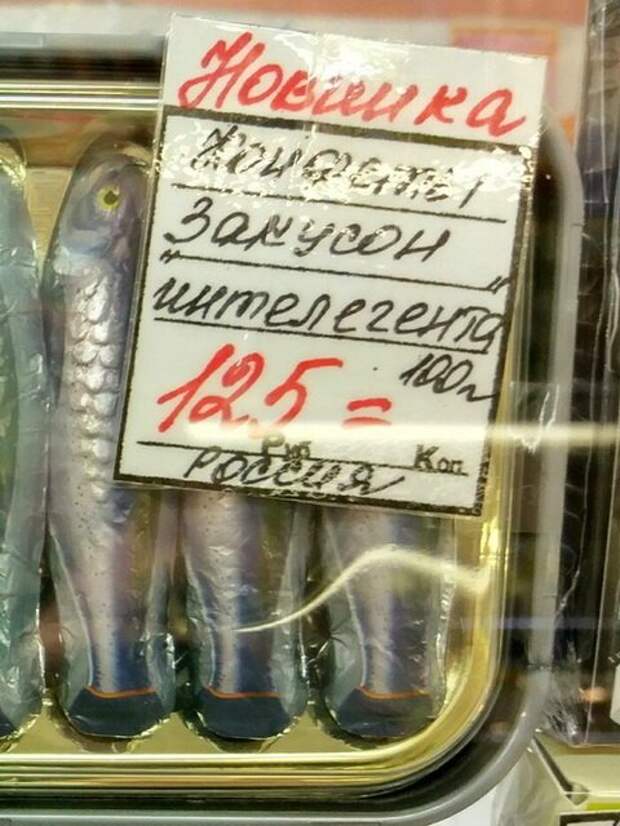 Новинка
Конфеты
"Закусон
интелегента"
100г
125=
Руб Коп.
Россия